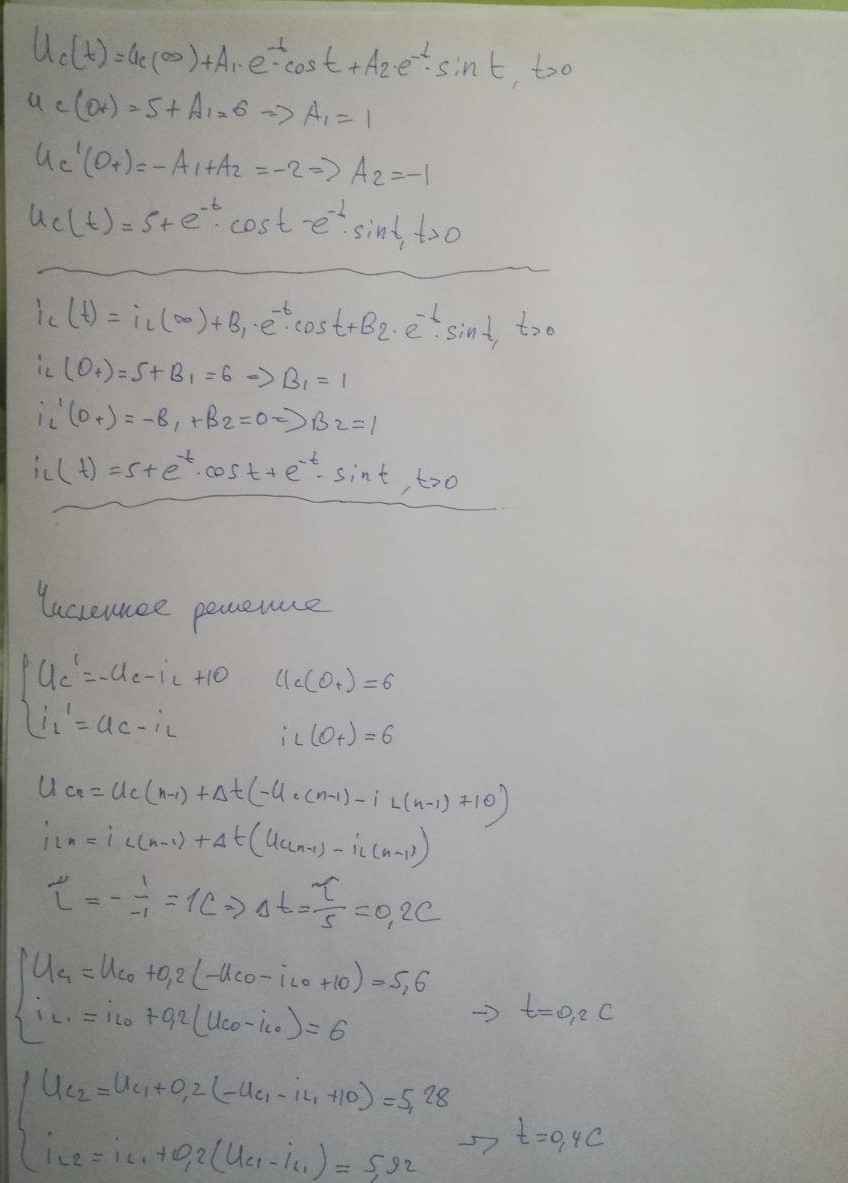 Uc(t)=Uc(∞)+A₁·e⁻ᵗ·cost+A₂·e⁻ᵗ·sint, t>0
Uc(0₊)=5+A₁=6 => A₁=1
Uc'(0₊)=-A₁+A₂=-2=>A₂=-1
Uc(t)=5+e⁻ᵗ·cost-e⁻ᵗ·sint, t>0
iL(t)=iL(∞)+B₁·e⁻ᵗ·cost+B₂·e⁻ᵗ·sint, t>0
iL(0₊)=5+B₁=6 => B₁=1
iL'(0₊)=-B₁+B₂=0=>B₂=1
iL(t)=5+e⁻ᵗ·cost+e⁻ᵗ·sint, t>0
Численное решение
Uc'=-Uc-iL+10 Uc(0₊)=6
iL'=Uc-iL iL(0₊)=6
Ucn=Uc(n-1)+Δt(-Uc(n-1)-iL(n-1)+10)
iLn=iL(n-1)+Δt(Uc(n-1)-iL(n-1))
τ=-1/-1=1C=>Δt=τ/5=0,2C
Uc1=Uc0+0,2(-Uc0-iL0+10)=5,6
iL1=iL0+0,2(Uc0-iL0)=6 -> t=0,2C
Uc2=Uc1+0,2(-Uc1-iL1+10)=5,28
iL2=iL1+0,2(Uc1-iL1)=5,92 => t=0,4C